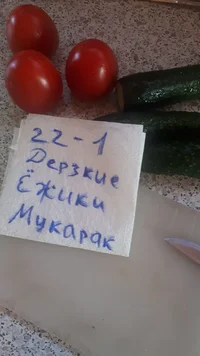 22-1
Дерзкие
Ёжики
Мукарак